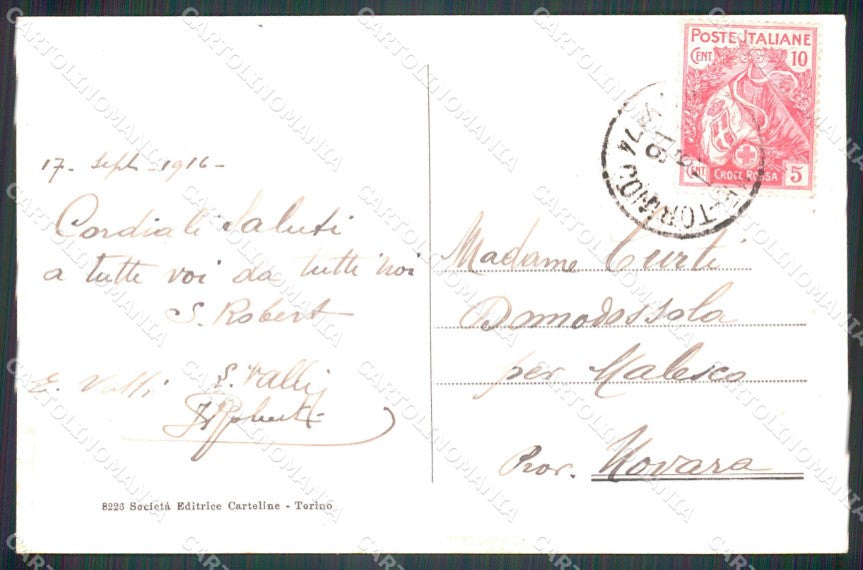 17. Sept - 1916 -
Cordiali Saluti
a tutti voi da tutti noi
S. Robert
E. Valli
S. Valli
Robert
8226 Società Editrice Cartoline - Torino
POSTE ITALIANE
CENT. 10
CENT. CROCE ROSSA 5
Madame Curti
Domodossola
per Malesco
Prov. Novara
CARTOLINOMANIA